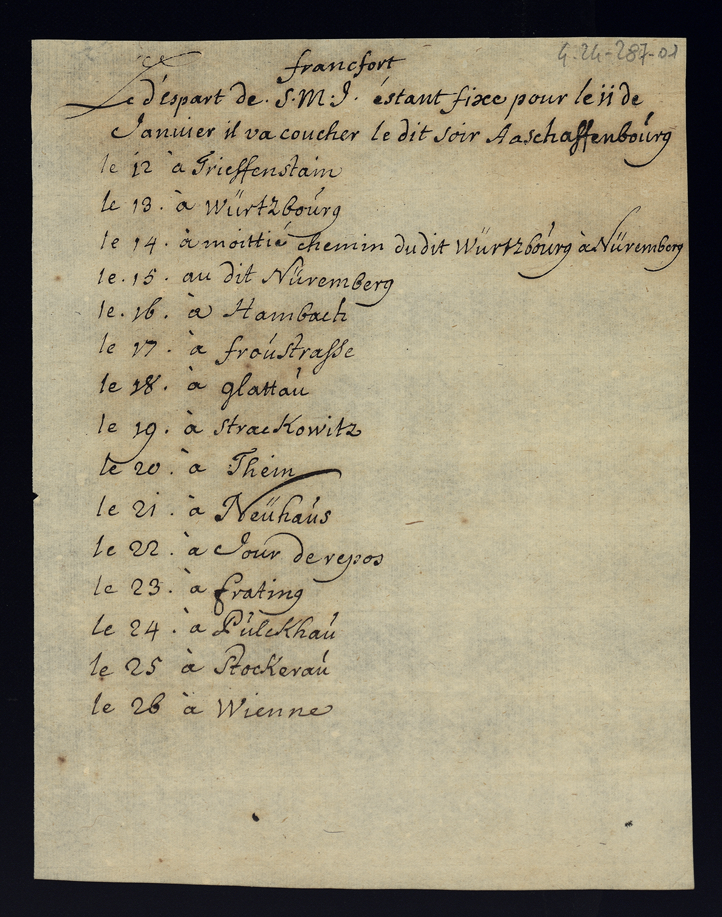 4.24-287-01
francfort
Le déspart de. S. M. J. éstant fixe pour le ii de
Janvier il va coucher le dit soir Aaschaffenboúrg
le 12 à Trieffenstain
le 13. à Würtzboúrg
le 14. à moittié chemin dudit Würtzboúrg à Nüremberg
le. 15. au dit Nüremberg
le. 16. à Hambach
le 17. à froústrasse
le 18. à glattaú
le 19. à strackowitz
le 20. à Thein
le 21. à Neühaús
le 22. à Jour de repos
le 23. à frating
le 24. à Púlckhaú
le 25 à Stockeraú
le 26 à Wienne